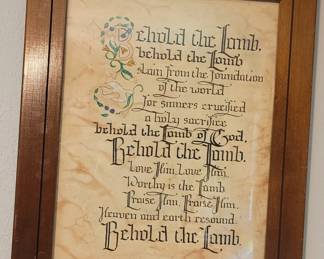 Behold the Lamb.
behold the Lamb
slain from the foundation
of the world
for sinners crucified
a holy sacrifice
behold the Lamb of God.
Behold the Lamb.
Love Him, Love Him,
Worthy is the Lamb
Praise Him, Praise Him,
Heaven and earth resound.
Behold the Lamb.